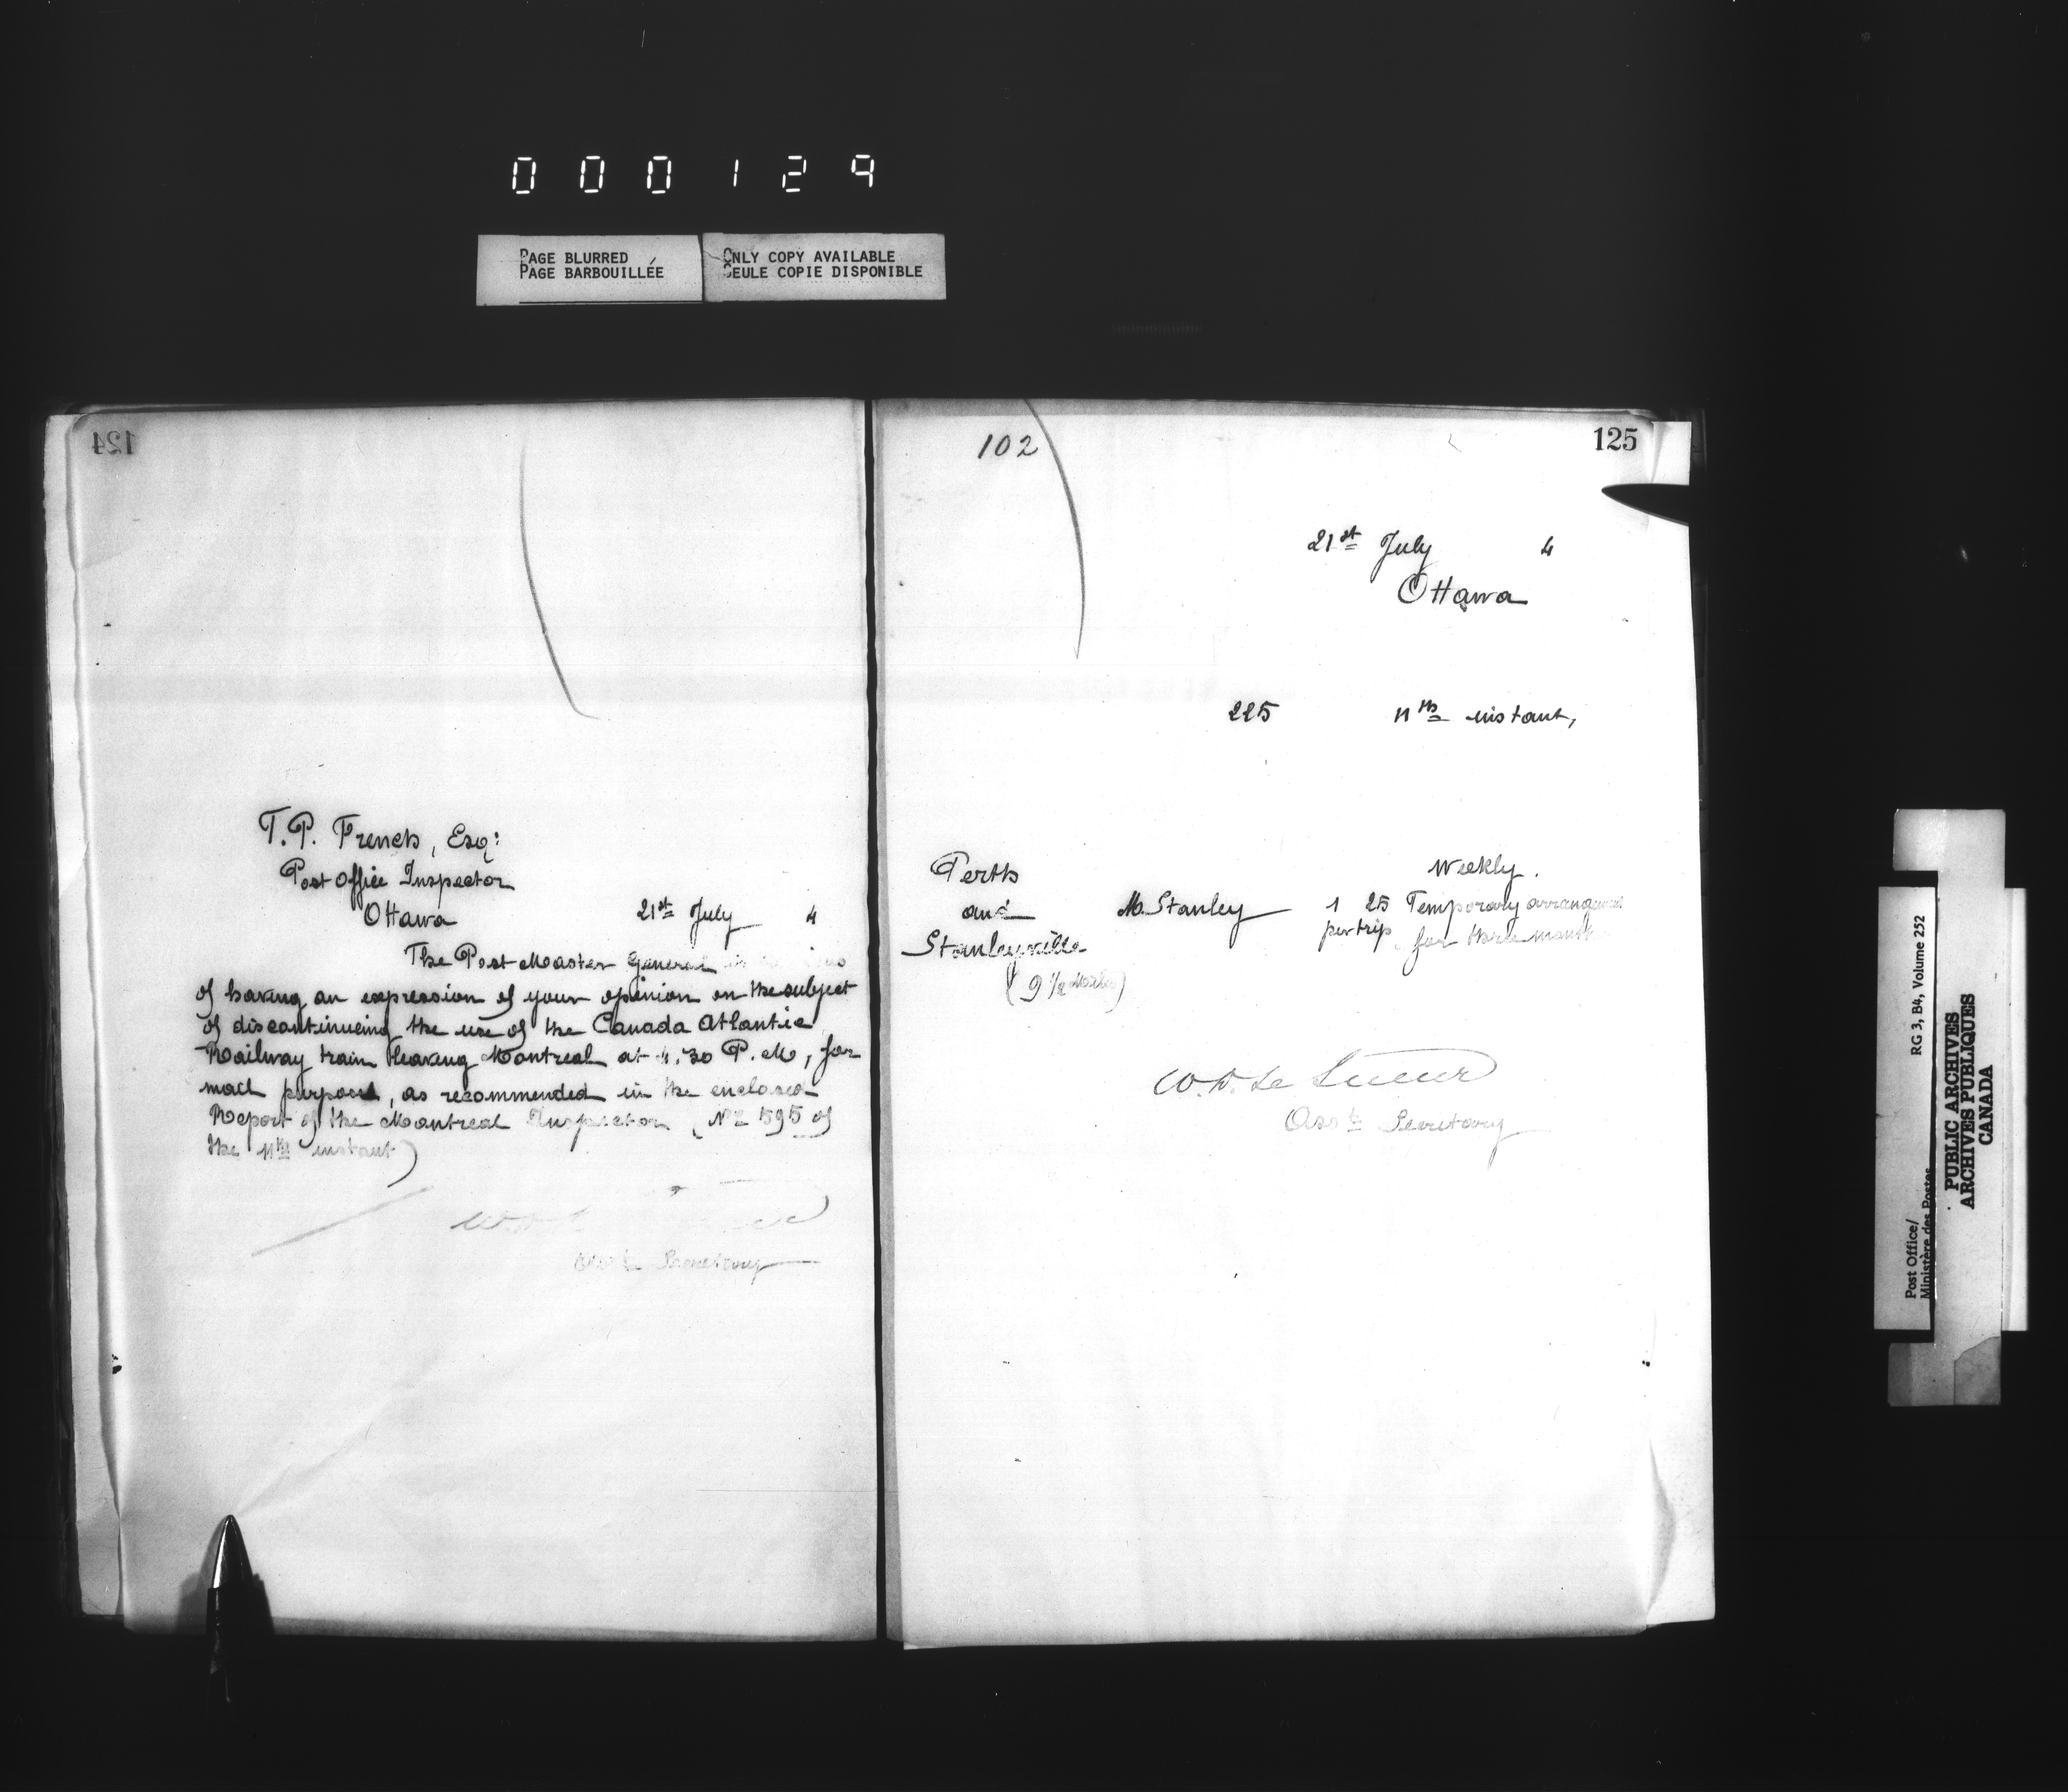 000129
PAGE BLURRED
PAGE BARBOUILLÉE
ONLY COPY AVAILABLE
SEULE COPIE DISPONIBLE
124
T.P. French, Esq:
Post Office Inspector
Ottawa 21st July 4
The Post Master General is
of having an expression of your opinion on the subject
of discontinueing the use of the Canada Atlantic
Railway train leaving Montreal at 4.30 P.M, for
mail purposes, as recommended in the enclosed
Report of the Montreal Inspector (No 595 of
the 11th instant)
Asst Secretary
102
125
21st July 4
Ottawa
225 11th instant,
Weekly.
Perth
and M. Stanley 1 25 Temporary arrangement
Stanleyville per trip for three months
(9 1/2 Miles)
W.D. Le Sueur
Asst Secretary
Post Office/
Ministère des Postes
RG 3, B4, Volume 252
PUBLIC ARCHIVES
ARCHIVES PUBLIQUES
CANADA